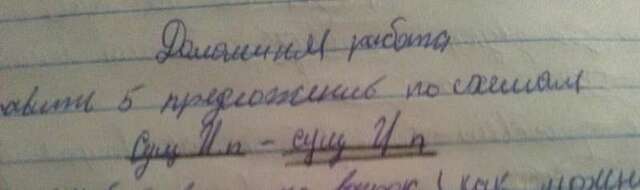 Домашняя работа
авить 5 предложений по схемам
Сущ И.п - сущ И п
как можн